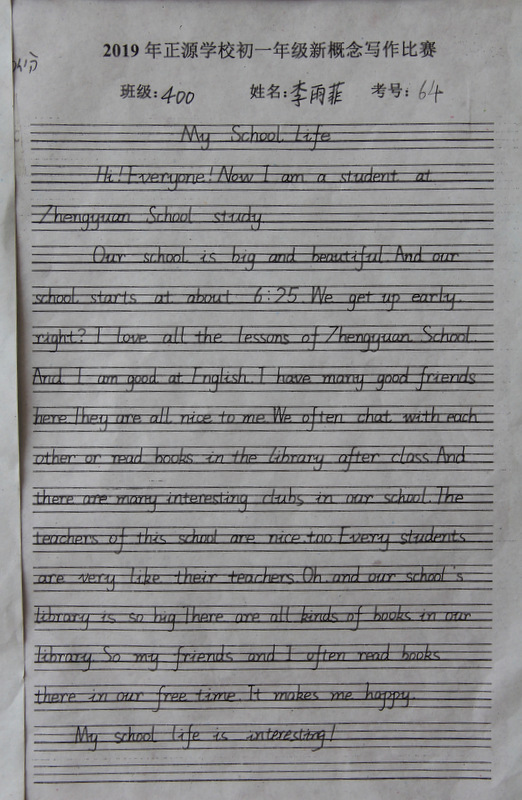 2019年正源学校初一年级新概念写作比赛
班级:400 姓名:李雨菲 考号:64
My School Life
Hi! Everyone! Now I am a student at
Zhengyuan School study
Our school is big and beautiful. And our
school starts at about 6:25. We get up early.
right? I love all the lessons of Zhengyuan School.
And I am good at English. I have many good friends
here. They are all nice to me. We often chat with each
other or read books in the library after class. And
there are many interesting clubs in our school. The
teachers of this school are nice, too. Every students
are very like their teachers. Oh, and our school's
library is so big. There are all kinds of books in our
library. So my friends and I often read books
there in our free time. It makes me happy.
My school life is interesting!